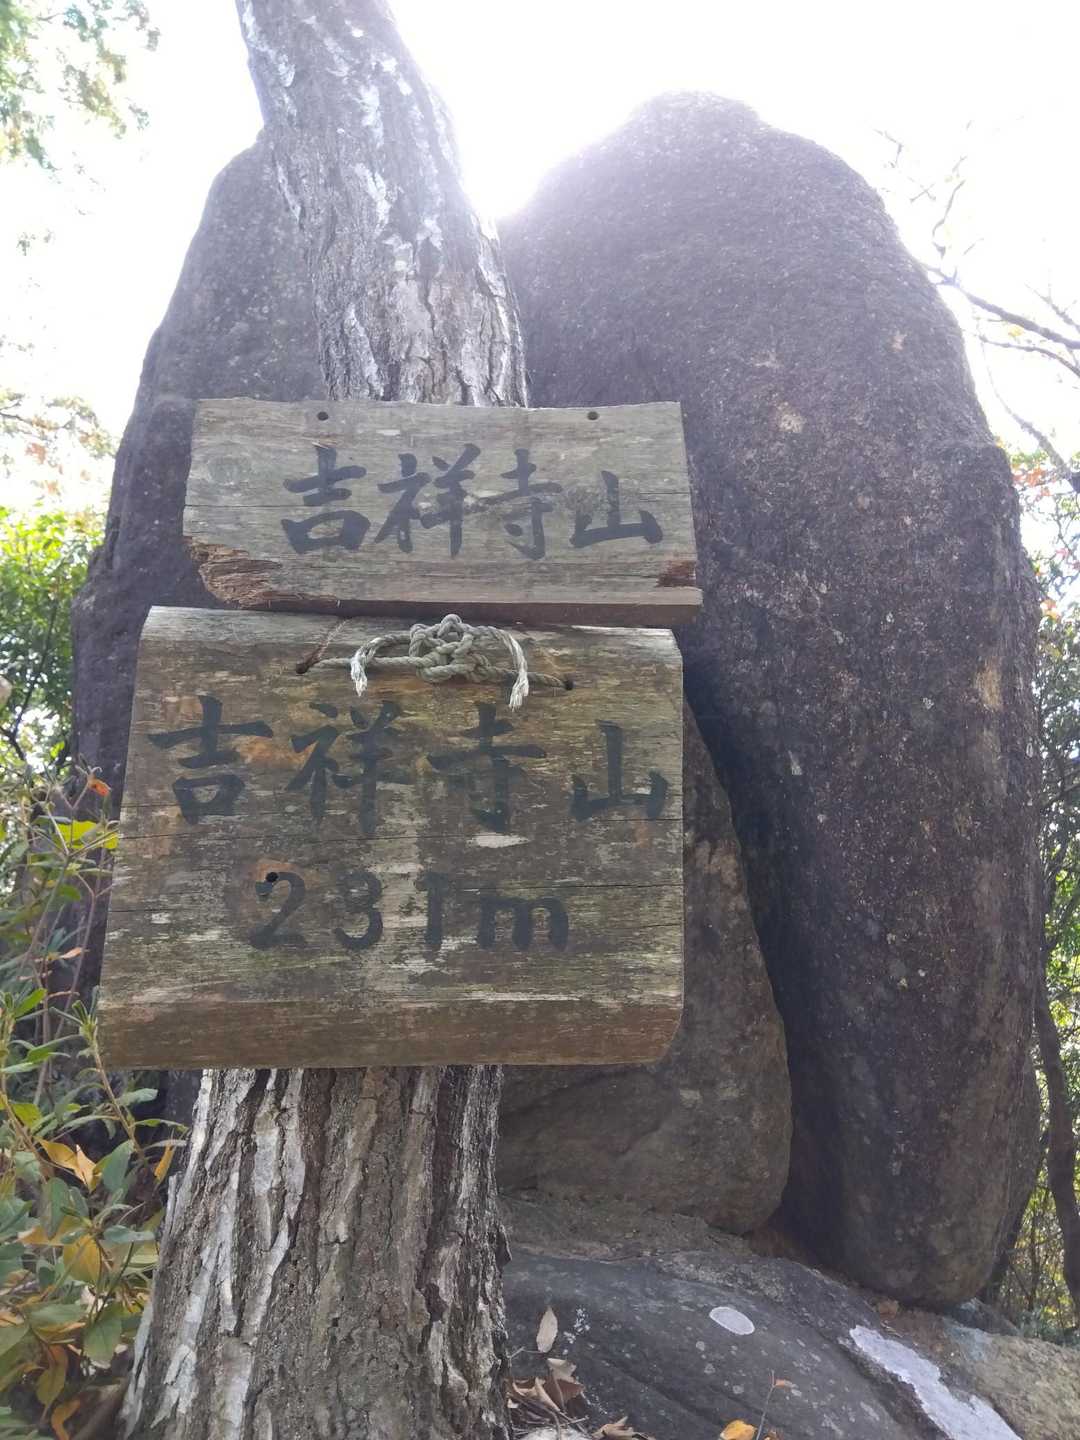 吉祥寺山
吉祥寺山
231m